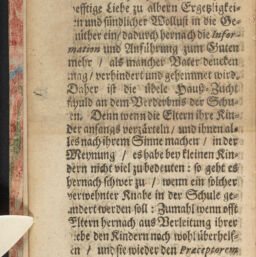 hefftige Liebe zu albern Ergetzligkei-
en und sündlicher Wollust in die Ge-
müther ein / dadurch hernach die Infor-
mation und Anführung zum Guten
mehr / als mancher Vater dencken
mag / verhindert und gehemmet wird.
Daher ist die übele Hauß-Zucht
schuld an dem Verderbnis der Schu-
en. Denn wenn die Eltern ihre Kin-
der anfangs verzärteln / und ihnen al-
les nach ihrem Sinne machen / in der
Meynung / es habe bey kleinen Kin-
dern nicht viel zu bedeuten : so geht es
hernach schwer zu / wenn ein solcher
verwehnter Knabe in der Schule ge-
ändert werden soll : Zumahl wenn offt
Eltern hernach aus Verleitung ihrer
ebe den Kindern noch wohl überhelf-
en / und sie wieder den Præceptorem